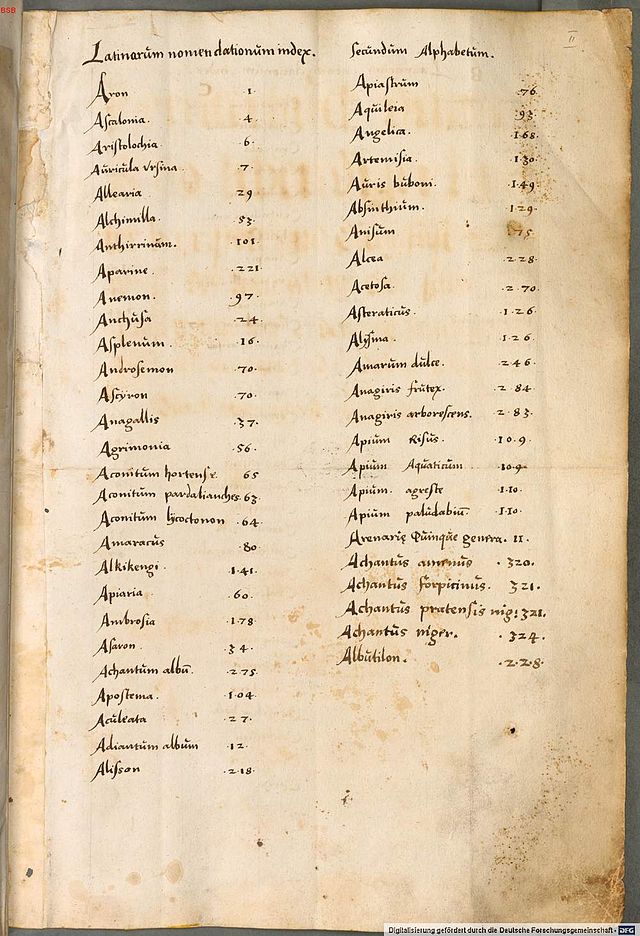 BSB
II
Latinarum nomenclationum index.
Aron 1
Ascalonia. 4.
Aristolochia 6.
Auricula Vrsina .7.
Allearia 29
Alchimilla. 53.
Anthirrinum. .101.
Aparine. .221.
Anemon. .97.
Anchusa .24.
Asplenum. .16.
Androsemon .70.
Ascyron .70.
Anagallis .37.
Agrimonia .56.
Aconitum hortense 65
Aconitum pardalianches. 63.
Aconitum lycoctonon .64.
Amaracus .80
Alkikengi. .141.
Apiaria .60.
Ambrosia .178
Asaron. .34.
Achantum albū. .275
Apostema. .104.
Aculeata .27.
Adiantum album .12.
Alisson .218.
Secundum Alphabetum.
Apiastrum .76.
Aquilera .93.
Angelica. .168.
Artemisia. .130.
Auris buboni. .149.
Absinthium. .129.
Anisum .75.
Alcea .228.
Acetosa. .270.
Asteraticus. .126.
Alysma. 126.
Amarum dulce. .246.
Anagiris frutex. .284.
Anagiris arborescens. .283.
Apium Risus. .109.
Apium Aquaticum .109.
Apium agreste .110.
Apium paludabiū .110.
Arenarię Quinque genera. 11.
Achantus amenus .320.
Achantus forpicinus. 321.
Achantus pratensis nig: 321.
Achantus niger. .324.
Albutilon. .228.
Digitalisierung gefördert durch die Deutsche Forschungsgemeinschaft - DFG